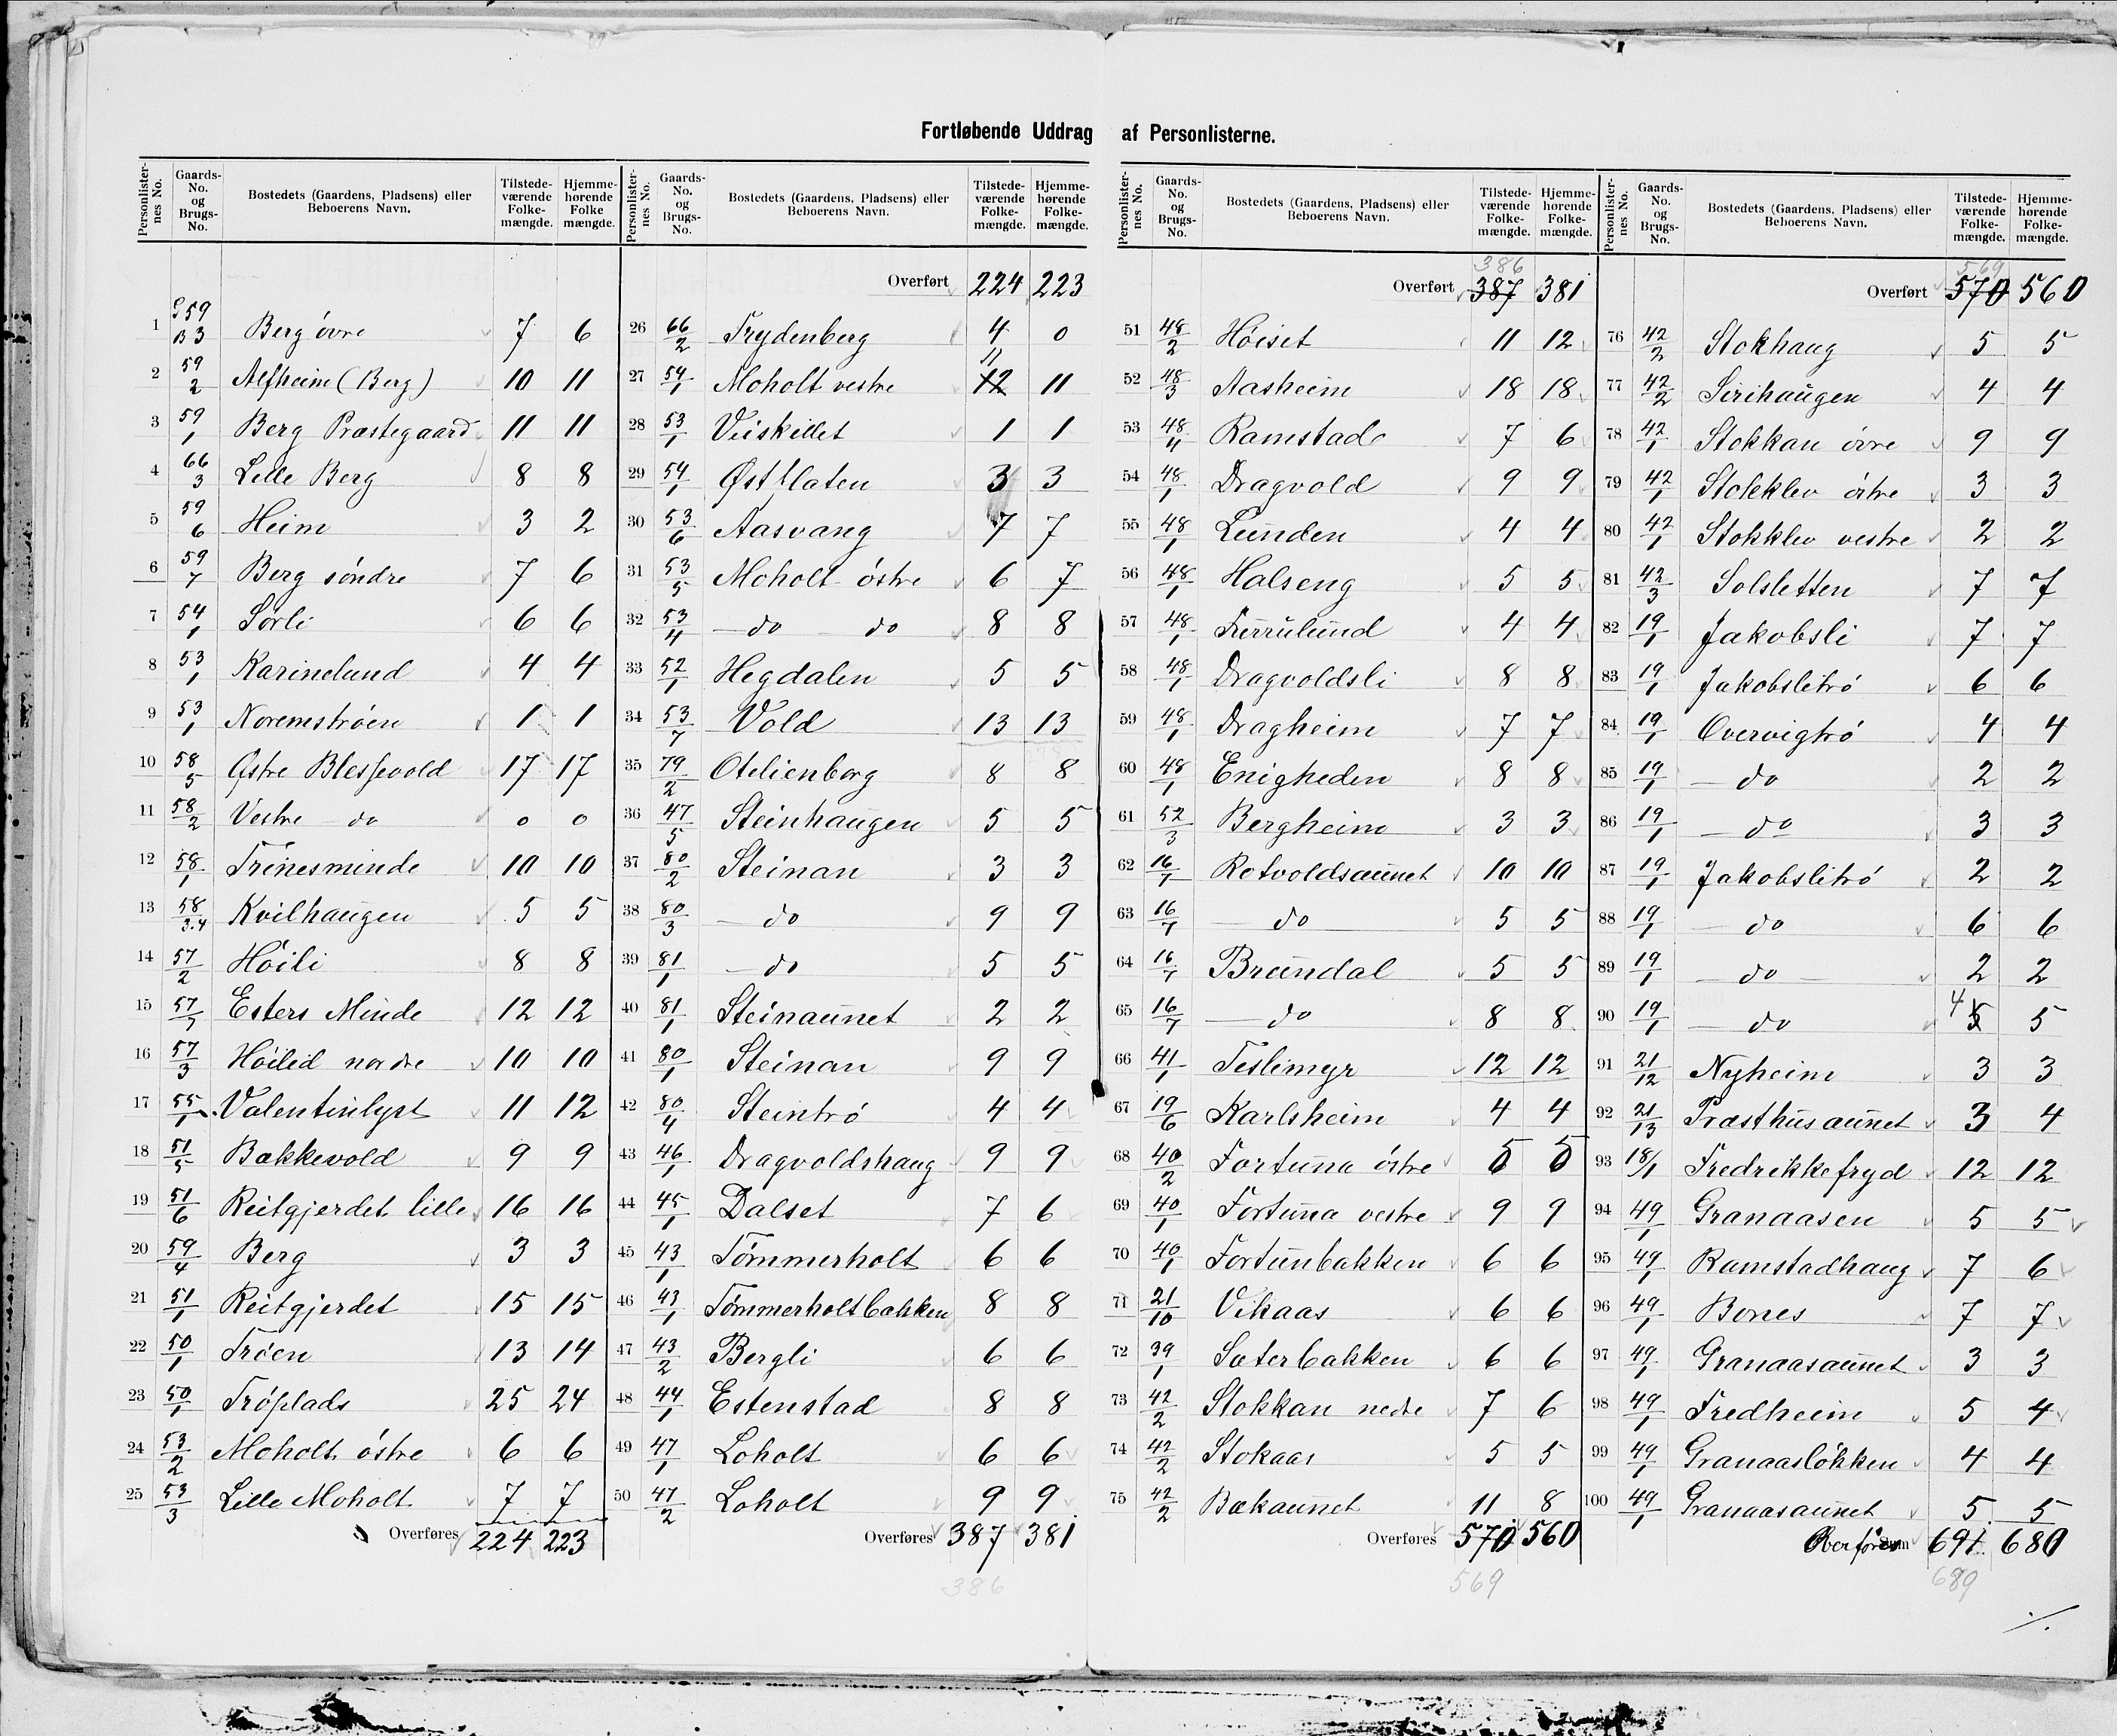 Fortløbende Uddrag af Personlisterne.
Personlisternes No. | Gaards-No. og Brugs-No. | Bostedets (Gaardens, Pladsens) eller Beboerens Navn. | Tilstedeværende Folkemængde. | Hjemmehørende Folkemængde.
1 G 59 B 3 Berg övre 7 6
2 59/2 Alfheim (Berg) 10 11
3 59/1 Berg Præstegaard 11 11
4 66/3 Lille Berg 8 8
5 59/6 Heim 3 2
6 59/7 Berg söndre 7 6
7 54/1 Sörli 6 6
8 53/1 Karinelund 4 4
9 53/1 Noremströen 1 1
10 58/5 Østre Blessevold 17 17
11 58/2 Vestre do 0 0
12 58/1 Trinesminde 10 10
13 58/3.4 Kvilhaugen 5 5
14 57/2 Höili 8 8
15 57/7 Esters Minde 12 12
16 57/3 Höilid nordre 10 10
17 55/1 Valentinlyst 11 12
18 51/5 Bakkevold 9 9
19 51/6 Reitgjerdet lille 16 16
20 59/4 Berg 3 3
21 51/1 Reitgjerdet 15 15
22 50/1 Tröen 13 14
23 50/1 Tröplads 25 24
24 53/2 Moholt östre 6 6
25 53/3 Lille Moholt 7 7
Overføres 224 223
Personlisternes No. | Gaards-No. og Brugs-No. | Bostedets (Gaardens, Pladsens) eller Beboerens Navn. | Tilstedeværende Folkemængde. | Hjemmehørende Folkemængde.
Overført 224 223
26 66/2 Frydenberg 4 0
27 54/1 Moholt vestre 12 11 11
28 53/1 Veiskillet 1 1
29 54/1 Østflaten 3 3
30 53/6 Aasvang 7 7
31 53/5 Moholt östre 6 7
32 53/4 do do 8 8
33 52/1 Hegdalen 5 5
34 53/7 Vold 13 13
35 79/2 Otelienborg 8 8
36 47/5 Steinhaugen 5 5
37 80/2 Steinan 3 3
38 80/3 do 9 9
39 81/1 do 5 5
40 81/1 Steinaunet 2 2
41 80/1 Steinan 9 9
42 80/4 Steintrö 4 4
43 46/1 Dragvoldshaug 9 9
44 45/1 Dalset 7 6
45 43/1 Tömmerholt 6 6
46 43/1 Tömmerholtbakken 8 8
47 43/2 Bergli 6 6
48 44/1 Estenstad 8 8
49 47/1 Loholt 6 6
50 47/2 Loholt 9 9
Overføres 387 381
386
Personlisternes No. | Gaards-No. og Brugs-No. | Bostedets (Gaardens, Pladsens) eller Beboerens Navn. | Tilstedeværende Folkemængde. | Hjemmehørende Folkemængde.
386
Overført 387 381
51 48/2 Höiset 11 12
52 48/3 Aasheim 18 18
53 48/4 Ramstad 7 6
54 48/1 Dragvold 9 9
55 48/1 Lunden 4 4
56 48/1 Halseng 5 5
57 48/1 Furulund 4 4
58 48/1 Dragvoldsli 8 8
59 48/1 Dragheim 7 7
60 48/1 Enigheden 8 8
61 52/3 Bergheim 3 3
62 16/7 Rotvoldsaunet 10 10
63 16/7 do 5 5
64 16/7 Brundal 5 5
65 16/7 do 8 8
66 41/1 Teslimyr 12 12
67 19/6 Karlsheim 4 4
68 40/2 Fortuna östre 5 5
69 40/1 Fortuna vestre 9 9
70 40/1 Fortunbakken 6 6
71 21/10 Vikaas 6 6
72 39/1 Sæterbakken 6 6
73 42/2 Stokkan nedre 7 6
74 42/2 Stokaas 5 5
75 42/2 Bækaunet 11 8
Overføres 570 560
569
Personlisternes No. | Gaards-No. og Brugs-No. | Bostedets (Gaardens, Pladsens) eller Beboerens Navn. | Tilstedeværende Folkemængde. | Hjemmehørende Folkemængde.
569
Overført 570 560
76 42/2 Stokhaug 5 5
77 42/2 Sirihaugen 4 4
78 42/1 Stokkan övre 9 9
79 42/1 Stokklev östre 3 3
80 42/1 Stokklev vestre 2 2
81 42/3 Solsletten 7 7
82 19/1 Jakobsli 7 7
83 19/1 Jakobslitrö 6 6
84 19/1 Overvigtrö 4 4
85 19/1 do 2 2
86 19/1 do 3 3
87 19/1 Jakobslitrö 2 2
88 19/1 do 6 6
89 19/1 do 2 2
90 19/1 do 4 5 5
91 21/12 Nyheim 3 3
92 21/13 Præsthusaunet 3 4
93 18/1 Fredrikkefryd 12 12
94 49/1 Granaasen 5 5
95 49/1 Ramstadhaug 7 6
96 49/1 Bones 7 7
97 49/1 Granaasaunet 3 3
98 49/1 Fredheim 5 4
99 49/1 Granaaslökken 4 4
100 49/1 Granaasaunet 5 5
Overføres 691 680
689